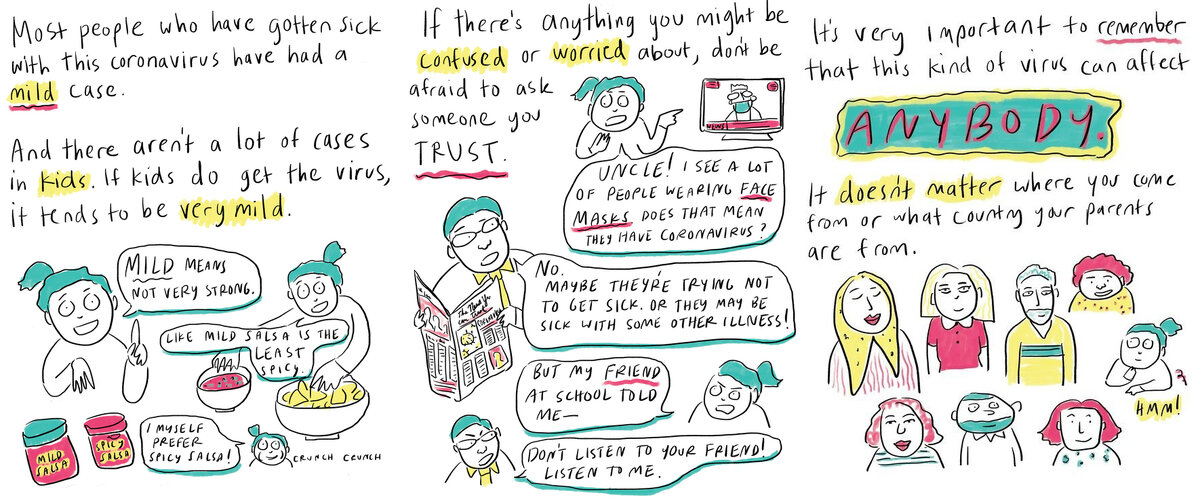 Most people who have gotten sick
with this coronavirus have had a
mild case.
And there aren't a lot of cases
in kids. If kids do get the virus,
it tends to be very mild.
MILD MEANS
NOT VERY STRONG.
LIKE MILD SALSA IS THE
LEAST
SPICY.
MILD
SALSA
SPICY
SALSA
I MYSELF
PREFER
SPICY SALSA!
CRUNCH CRUNCH
If there's anything you might be
confused or worried about, don't be
afraid to ask
someone you
TRUST.
NEWS
UNCLE! I SEE A LOT
OF PEOPLE WEARING FACE
MASKS DOES THAT MEAN
THEY HAVE CORONAVIRUS?
NO.
MAYBE THEY'RE TRYING NOT
TO GET SICK. OR THEY MAY BE
SICK WITH SOME OTHER ILLNESS!
BUT MY FRIEND
AT SCHOOL TOLD
ME—
DON'T LISTEN TO YOUR FRIEND!
LISTEN TO ME.
It's very important to remember
that this kind of virus can affect
ANYBODY.
It doesn't matter where you come
from or what country your parents
are from.
HMM!